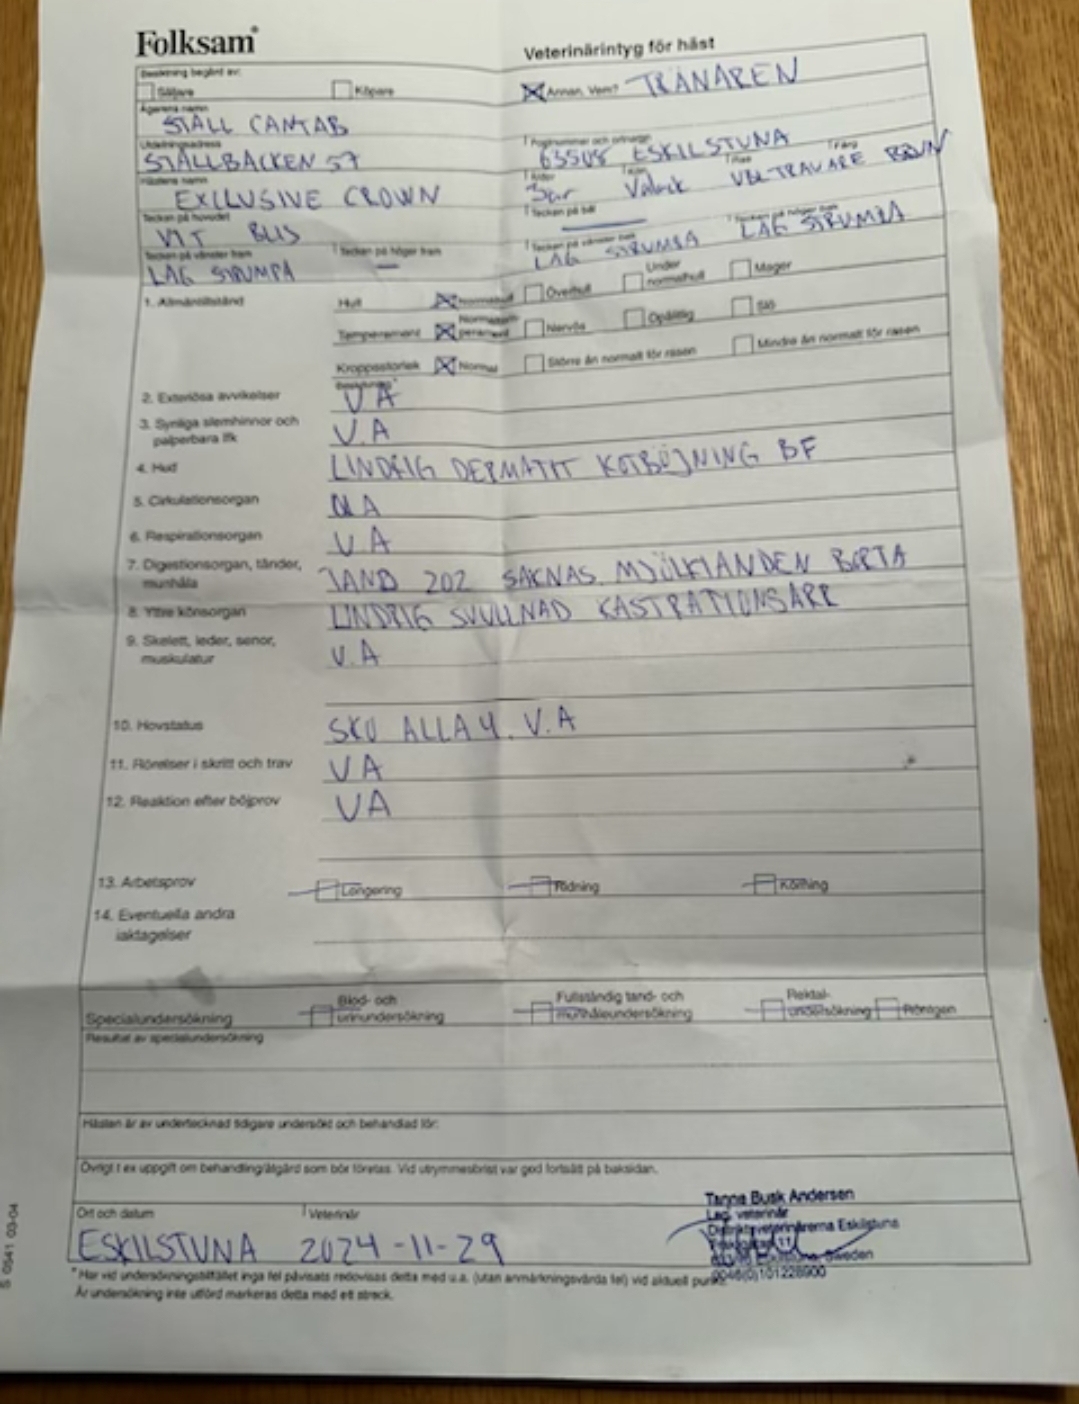 Folksam
Veterinärintyg för häst
Besiktning begärd av:
Säljare Köpare Annan. Vem? TRÄNAREN
Ägarens namn
STALL CANTAB
Utdelningsadress Postnummer och ortnamn
STALLBACKEN 57 63508 ESKILSTUNA
Hästens namn Ålder Kön Ras Färg
EXCLUSIVE CROWN 3år Valack VBL TRAVARE BRUN
Tecken på huvudet Tecken på bål
VIT BLIS
Tecken på vänster fram Tecken på höger fram Tecken på vänster bak Tecken på höger bak
LÅG STRUMPA LÅG STRUMPA LÅG STRUMPA
1. Allmäntillstånd Hull Normalhull Överhull Under normalhull Mager
Temperament Normaltemperament Nervös Opålitlig Slö
Kroppsstorlek Normal Större än normalt för rasen Mindre än normalt för rasen
Beskrivning*
2. Exteriösa avvikelser U A
3. Synliga slemhinnor och palperbara lfk U.A
4. Hud LINDRIG DERMATIT KOTBÖJNING BF
5. Cirkulationsorgan U A
6. Respirationsorgan U A
7. Digestionsorgan, tänder, munhåla TAND 202 SAKNAS. MJÖLKTANDEN BORTA
8. Yttre könsorgan LINDRIG SVULLNAD KASTRATIONSÄRR
9. Skelett, leder, senor, muskulatur U.A
10. Hovstatus SKO ALLA 4. U.A
11. Rörelser i skritt och trav U A
12. Reaktion efter böjprov U A
13. Arbetsprov Longering Ridning Körning
14. Eventuella andra iakttagelser
Specialundersökning Blod- och urinundersökning Fullständig tand- och munhåleundersökning Rektalundersökning Röntgen
Resultat av specialundersökning
Hästen är av undertecknad tidigare undersökt och behandlad för:
Övrigt t ex uppgift om behandling/åtgärd som bör företas. Vid utrymmesbrist var god fortsätt på baksidan.
Ort och datum Veterinär
ESKILSTUNA 2024-11-29
Tanna Busk Andersen
Leg. veterinär
Distriktsveterinärerna Eskilstuna
Eskilstuna, Sweden
0046(0)101228900
* Har vid undersökningstillfället inga fel påvisats redovisas detta med u.a. (utan anmärkningsvärda fel) vid aktuell punkt.
Är undersökning inte utförd markeras detta med ett streck.
S 0541 03-04